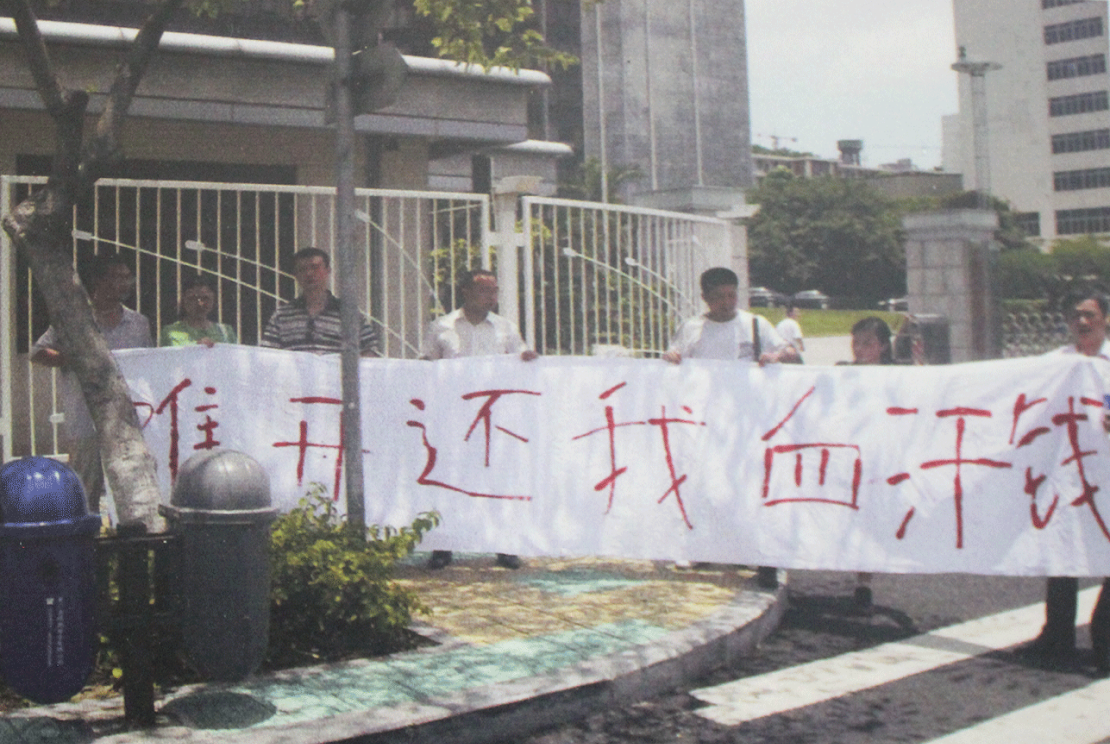 开还我血汗钱